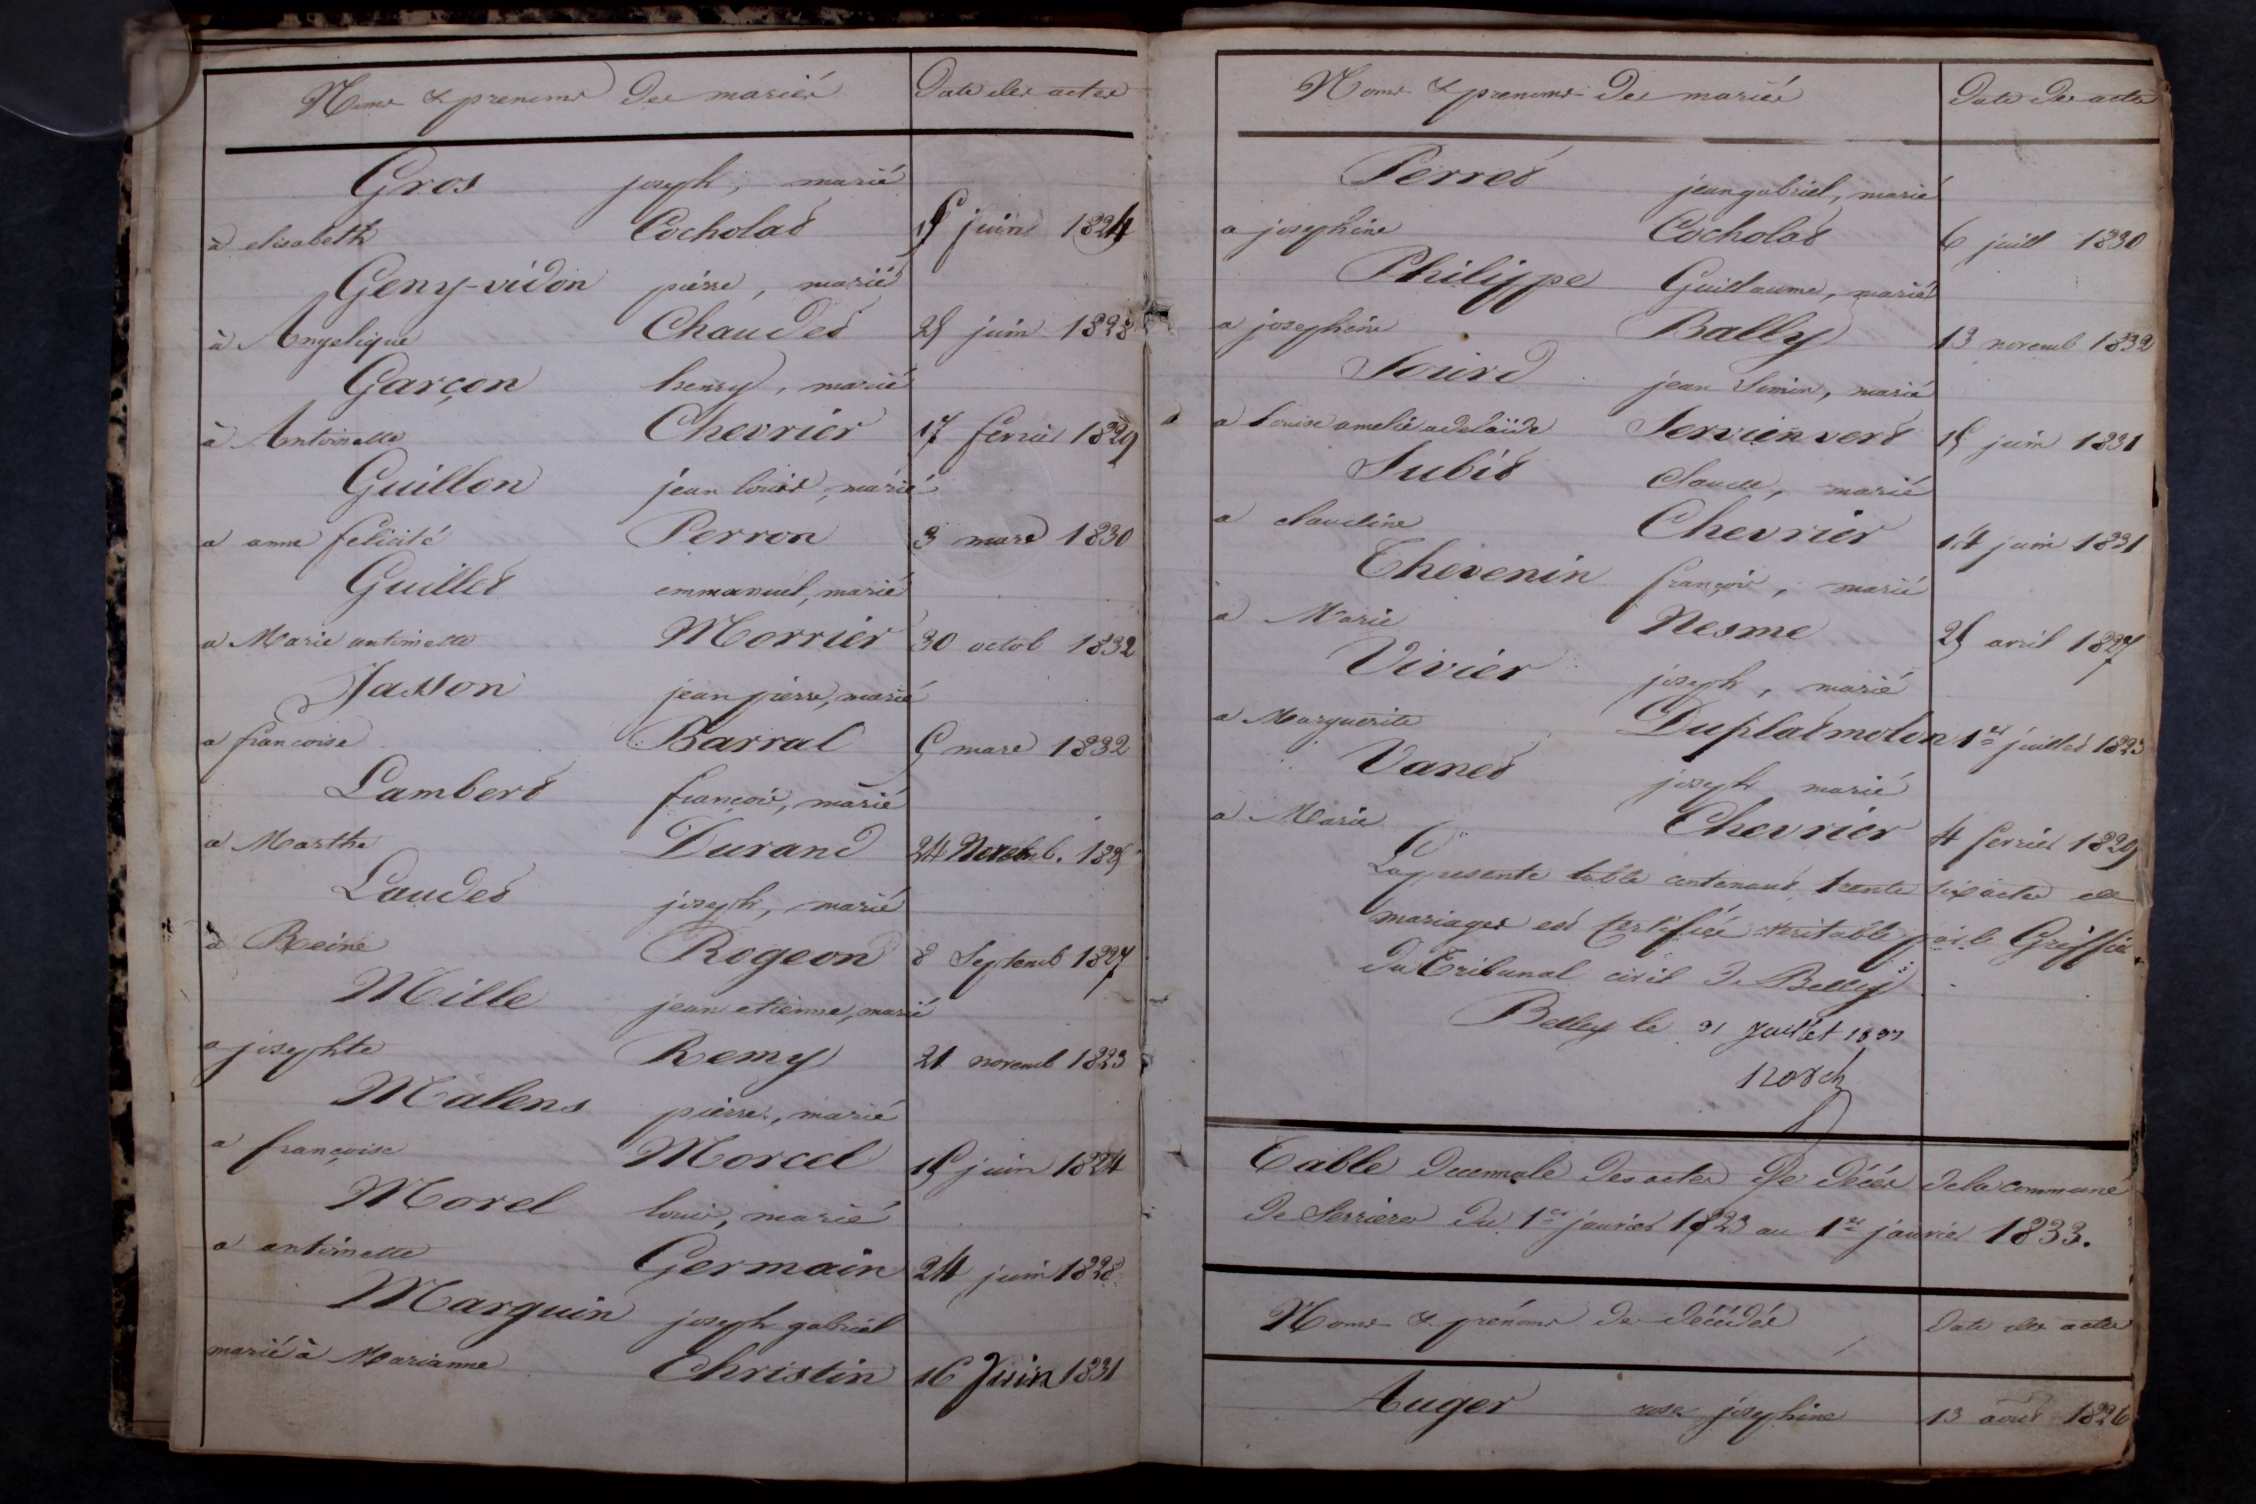 Noms & prenoms des mariés
Date des actes
Gros joseph, marié
à elisabeth Cocholat juin 1824
Geny-vidon pierre, marié
à Angelique Chaudet 25 juin 1828
Garçon henry, marié
à Antoinette Chevrier 17 fevrier 1829
Guillon jean louis, marié
a anne felicité Perron 3 mars 1830
Guillet emmanuel, marié
a Marie antoinette Morrier 30 octob 1832
Jasson jean pierre, marié
a francoise Barral mars 1832
Lambert françois, marié
a Marthe Durand 24 Novemb.
Laudet joseph, marié
à Reine Rogeon 8 Septemb 1827
Mille jean etienne, marié
a josephte Remy 21 novemb 1823
Malens pierre, marié
a françoise Morcel 15 juin 1824
Morel louis, marié
a antoinette Germain 24 juin 1828
Marquin joseph gabriel
marié à Marianne Christin 16 Juin 1831
Noms & prenoms des mariés
Date des actes
Perret jean gabriel, marié
a josephine Cocholat 6 juill 1830
Philippe Guillaume, marié
a josephine Bally 13 novemb 1832
Sourd jean Simon, marié
a Louise amelie adelaïde Servien vert 15 juin 1831
Subit Claude, marié
a claudine Chevrier 14 juin 1831
Thevenin françois, marié
a Marie Nesme 25 avril 1827
Vivier joseph, marié
a Marguerite Duplat molon 1er juillet 1823
Vanet joseph marié
a Marie Chevrier 4 fevrier 1829
La presente table contenant trente six actes de
mariages est certifiée veritable par le Greffier
du Tribunal civil de Belley
Belley le 31 Juillet
Table decennale des actes de décés de la commune
de Serrieres du 1er janvier 1823 au 1er janvier 1833.
Noms & prénoms des décédés
Date des actes
Auger rose josephine 13 aout 1826